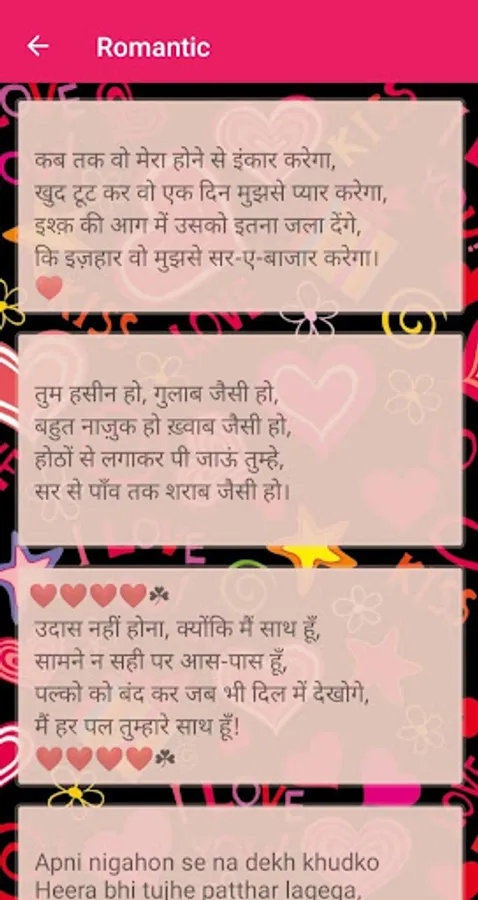 Romantic
कब तक वो मेरा होने से इंकार करेगा,
खुद टूट कर वो एक दिन मुझसे प्यार करेगा,
इश्क़ की आग में उसको इतना जला देंगे,
कि इज़हार वो मुझसे सर-ए-बाजार करेगा।
❤️
तुम हसीन हो, गुलाब जैसी हो,
बहुत नाज़ुक हो ख़्वाब जैसी हो,
होठों से लगाकर पी जाऊं तुम्हे,
सर से पाँव तक शराब जैसी हो।
❤️❤️❤️❤️☘
उदास नहीं होना, क्योंकि मैं साथ हूँ,
सामने न सही पर आस-पास हूँ,
पल्को को बंद कर जब भी दिल में देखोगे,
मैं हर पल तुम्हारे साथ हूँ!
❤️❤️❤️❤️☘
Apni nigahon se na dekh khudko
Heera bhi tujhe patthar lagega,